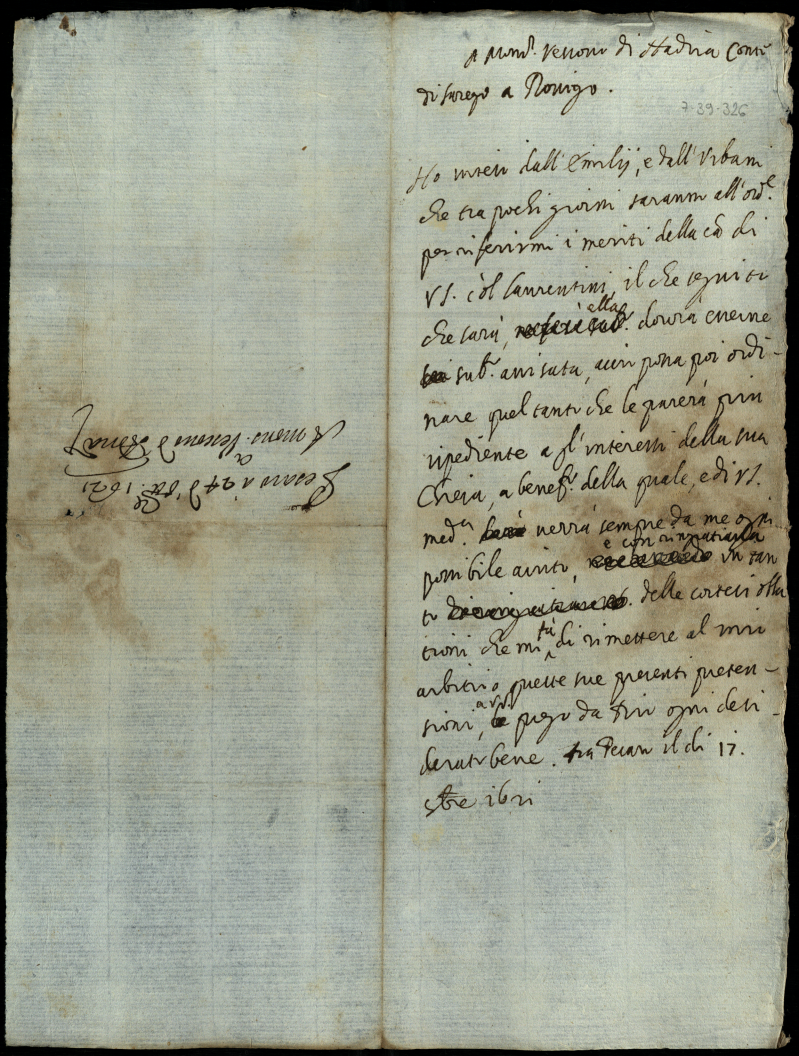 A Mons.r Vescovo di Hadria Conte
di Sarego a Rovigo.
7-39-326
Ho inteso dall'Emilij, e dall'Urbani
che tra pochi giorni saranno all'ord.e
per riferirmi i meriti della cã di
VS. cól Laurentini, il che seguito
che sarà, ella dovrà esserne
sub.o avisata, acciò possa poi ordi-
nare quel tanto che le parerà più
ispediente a gl'interessi della sua
Chiesa, a benef.o della quale, e di VS.
med.a verrà sempre da me ogni
possibile aiuto, e con ringratiarla in tan
to delle cortesi essa
tioni che mi fà di rimettere al mio
arbitrio queste sue presenti preten-
sioni, a VS. prego da Dio ogni desi-
derato bene. Pesaro il di 17.
bre 1621
Pesaro a 24 d' bre. 1621
A mons. Vescovo d'Adria